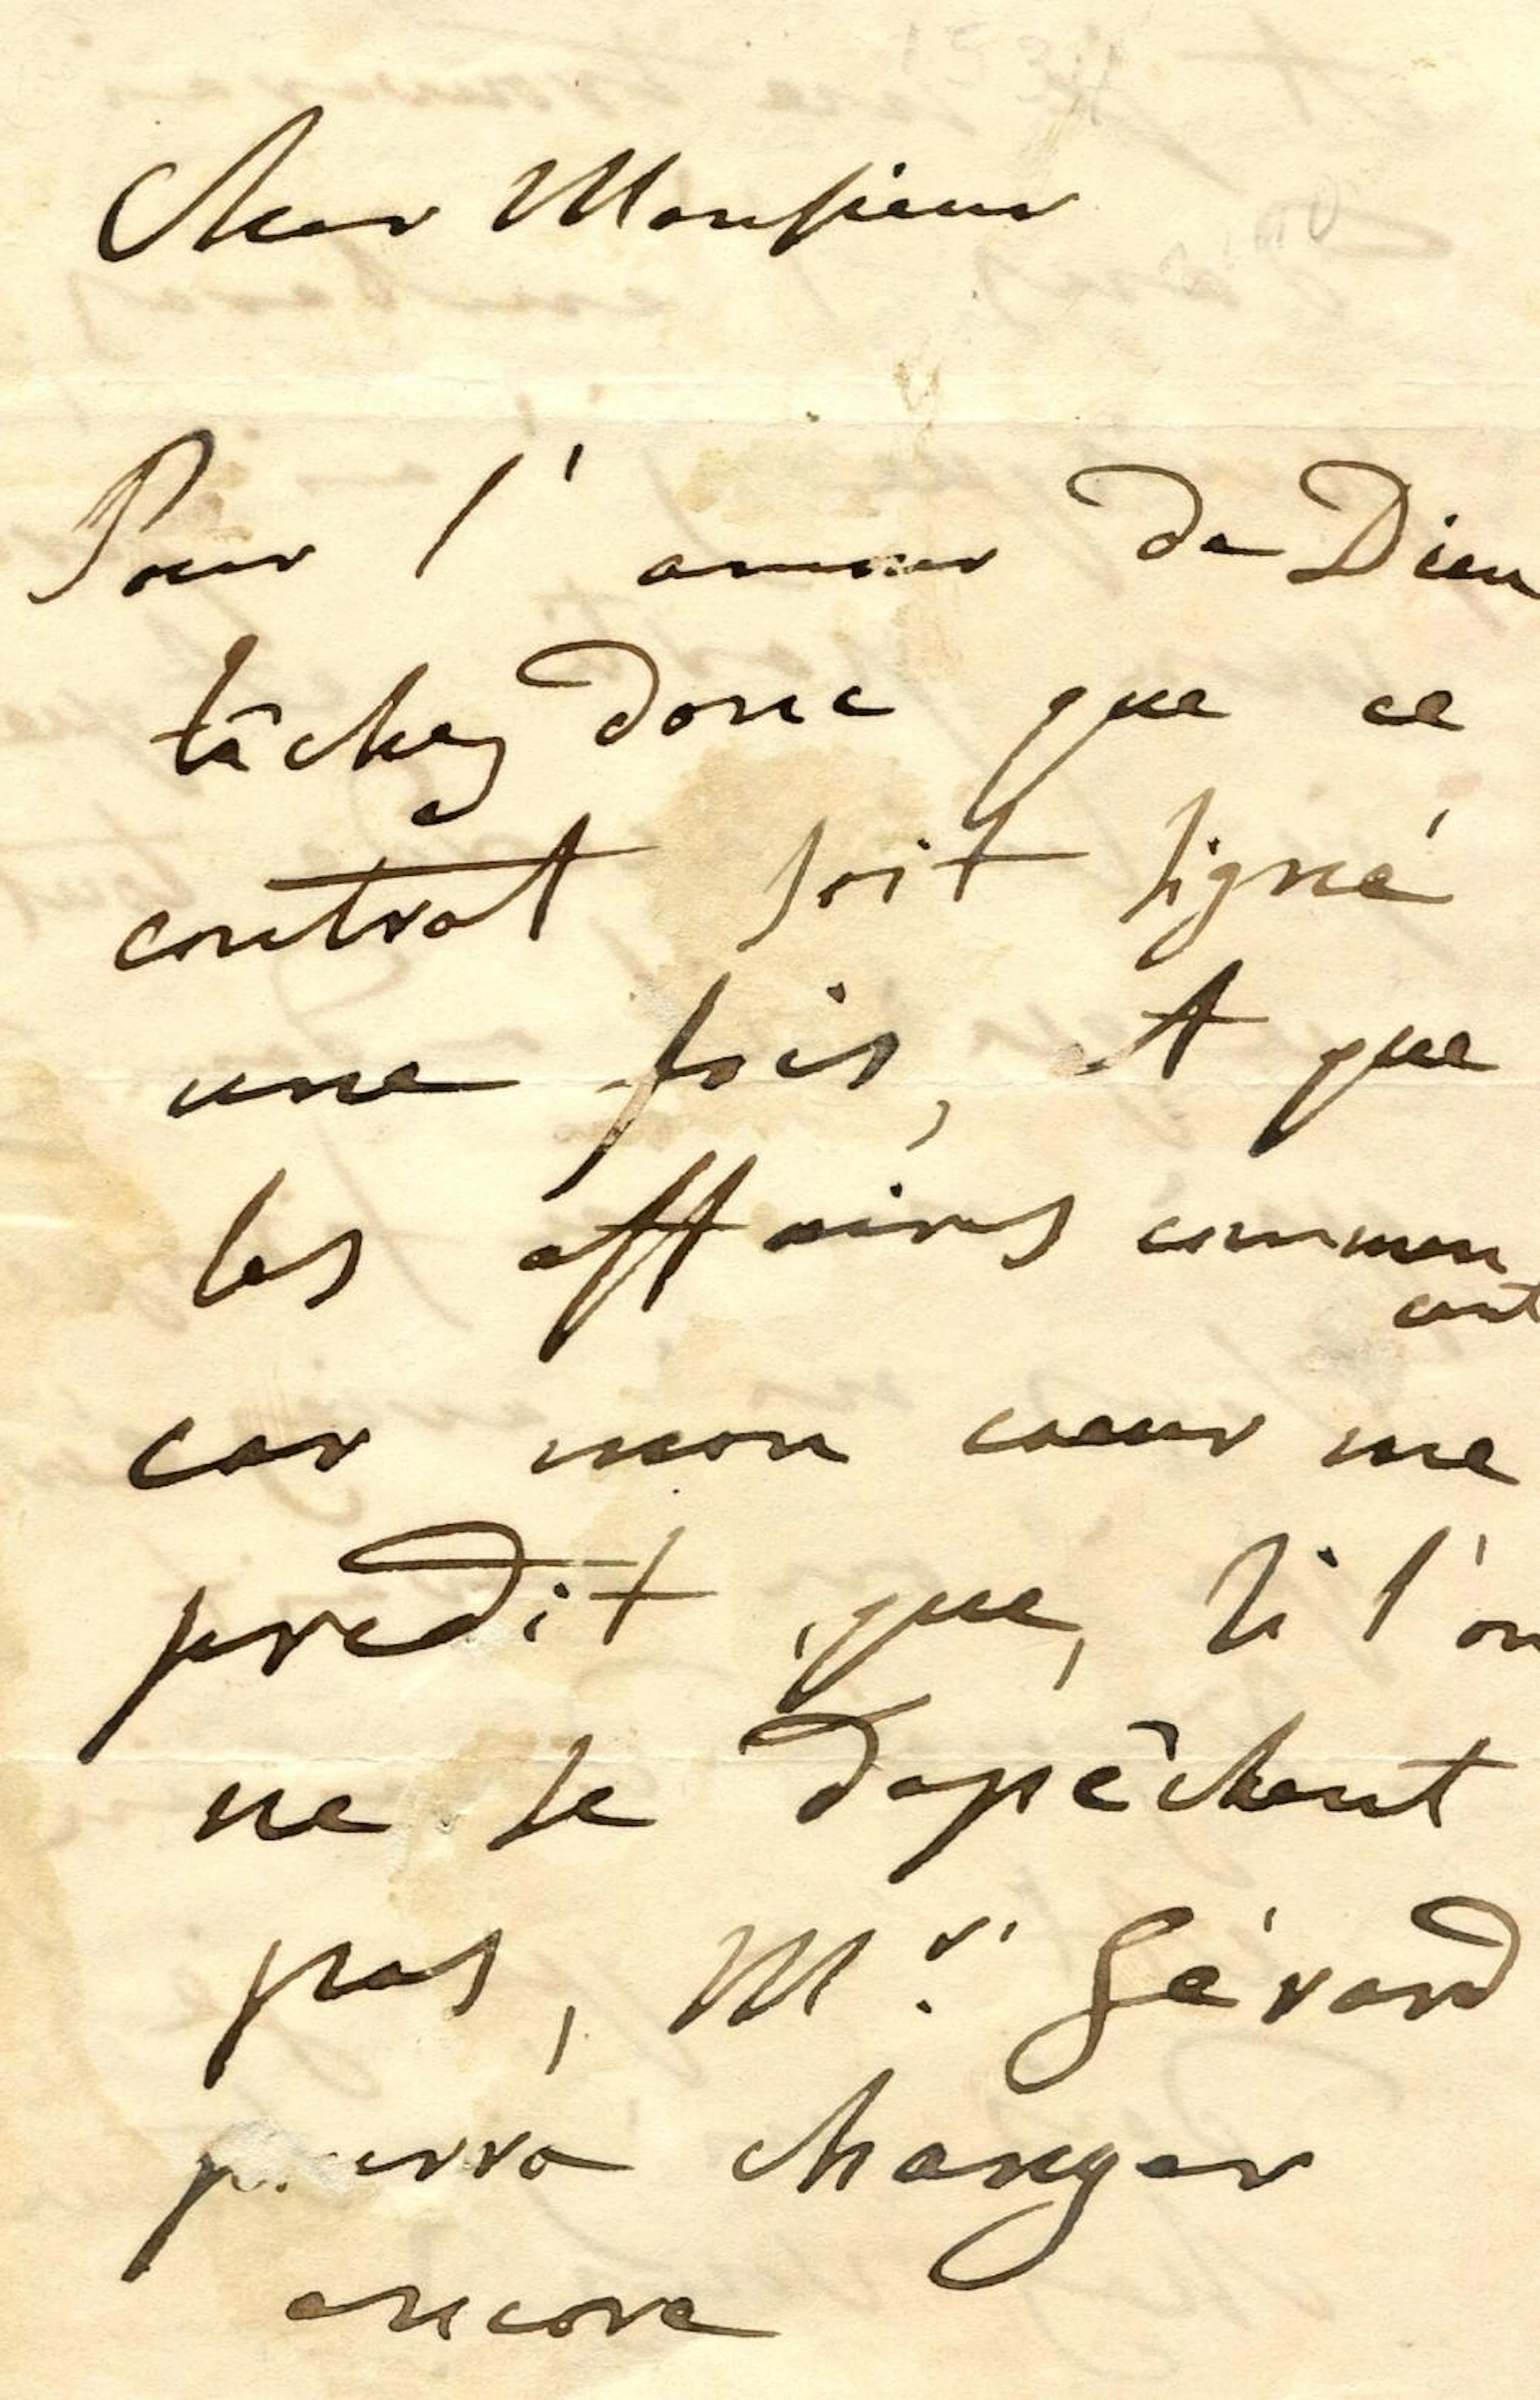 Cher Monsieur
Pour l'amour de Dieu
tâchez donc que ce
contrat soit signé
une fois, et que
les affaires commen
cent
car mon coeur me
predit que, si l'on
ne se depêchent
pas, Mr. Gérard
pourra changer
encore